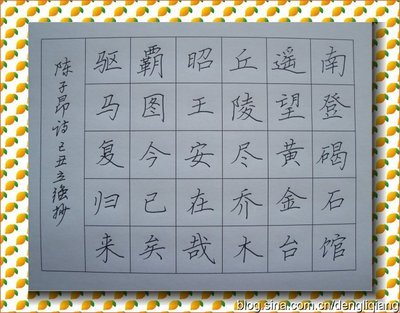 南登碣石馆
遥望黄金台
丘陵尽乔木
昭王安在哉
霸图今已矣
驱马复归来
陈子昂诗 己丑立强抄
blog.sina.com.cn/dengliqiang